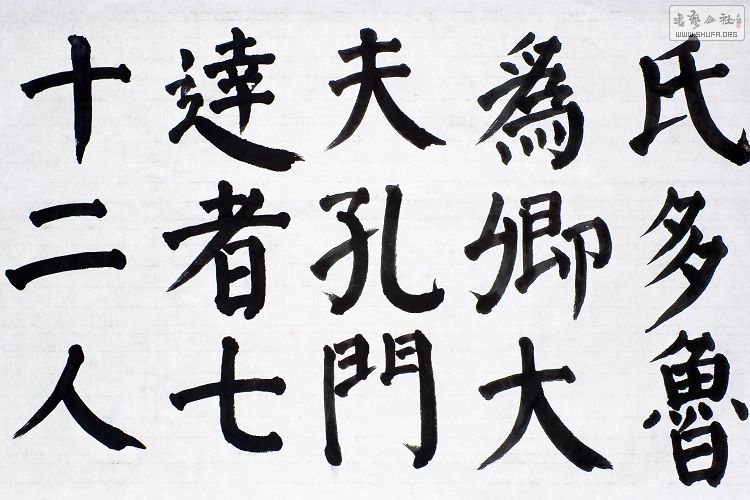 氏多魯
為卿大
夫孔門
達者七
十二人
書藝公社
WWW.SHUFA.ORG